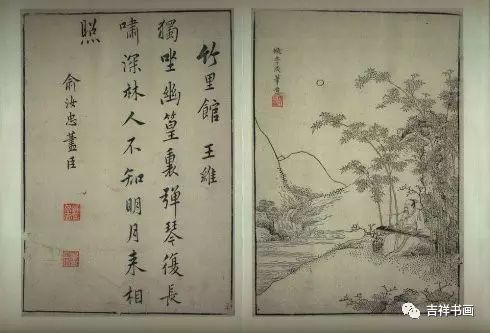 竹里館 王維
獨坐幽篁裏彈琴復長
嘯深林人不知明月来相
照
俞汝忠藎臣
李成筆意
吉祥书画